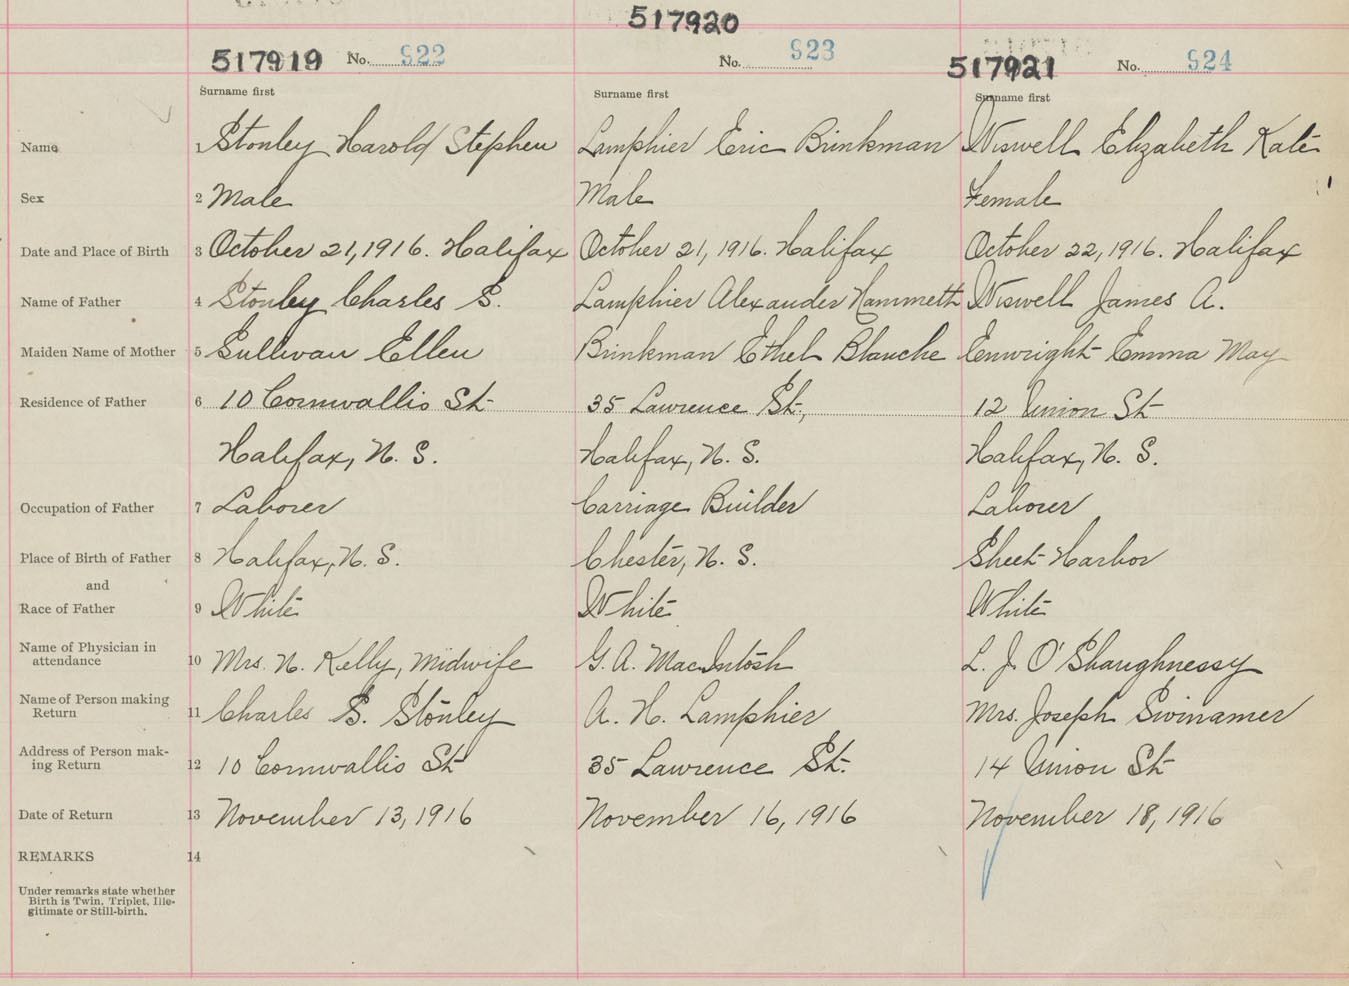 517920
517919 No. 922
No. 923
517921 No. 924
Surname first Surname first Surname first
Name 1 Stonley Harold Stephen Lamphier Eric Brinkman Wiswell Elizabeth Kate
Sex 2 Male Male Female
Date and Place of Birth 3 October 21, 1916. Halifax October 21, 1916. Halifax October 22, 1916. Halifax
Name of Father 4 Stonley Charles S. Lamphier Alexander Hammeth Wiswell James A.
Maiden Name of Mother 5 Sullivan Ellen Brinkman Ethel Blanche Enwright Emma May
Residence of Father 6 10 Cornwallis St 35 Lawrence St., 12 Union St
Halifax, N. S. Halifax, N. S. Halifax, N. S.
Occupation of Father 7 Laborer Carriage Builder Laborer
Place of Birth of Father 8 Halifax, N. S. Chester, N. S. Sheet Harbor
and
Race of Father 9 White White White
Name of Physician in
attendance 10 Mrs. N. Kelly, Midwife G. A. MacIntosh L. J. O'Shaughnessy
Name of Person making
Return 11 Charles S. Stonley A. H. Lamphier Mrs. Joseph Swinamer
Address of Person mak-
ing Return 12 10 Cornwallis St 35 Lawrence St. 14 Union St
Date of Return 13 November 13, 1916 November 16, 1916 November 18, 1916
REMARKS 14
Under remarks state whether
Birth is Twin, Triplet, Ille-
gitimate or Still-birth.